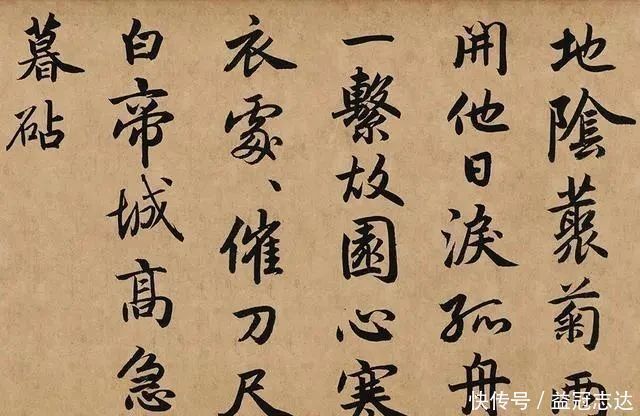 地陰藂菊兩
開他日淚孤舟
一繫故園心寒
衣處、催刀尺
白帝城高急
暮砧
快传号／益冠志达